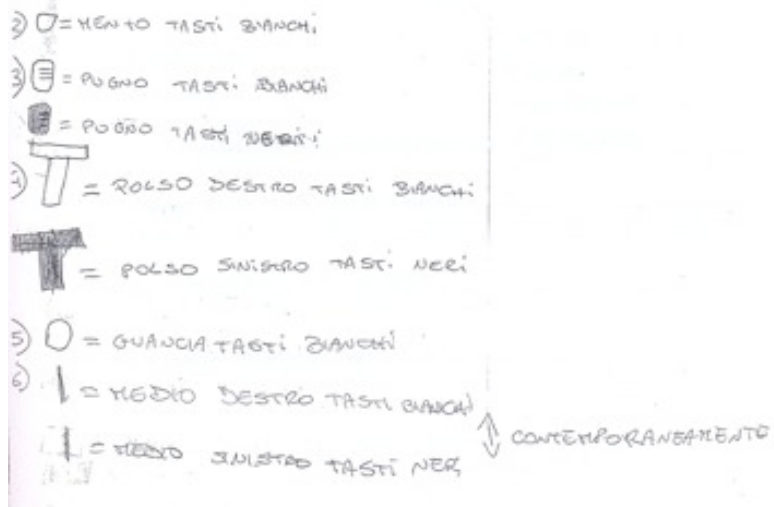 2) = MENTO TASTI BIANCHI
3) = PUGNO TASTI BIANCHI
= PUGNO TASTI NERI
4) = POLSO DESTRO TASTI BIANCHI
= POLSO SINISTRO TASTI NERI
5) = GUANCIA TASTI BIANCHI
6) = MEDIO DESTRO TASTI BIANCHI
= MEDIO SINISTRO TASTI NERI
CONTEMPORANEAMENTE